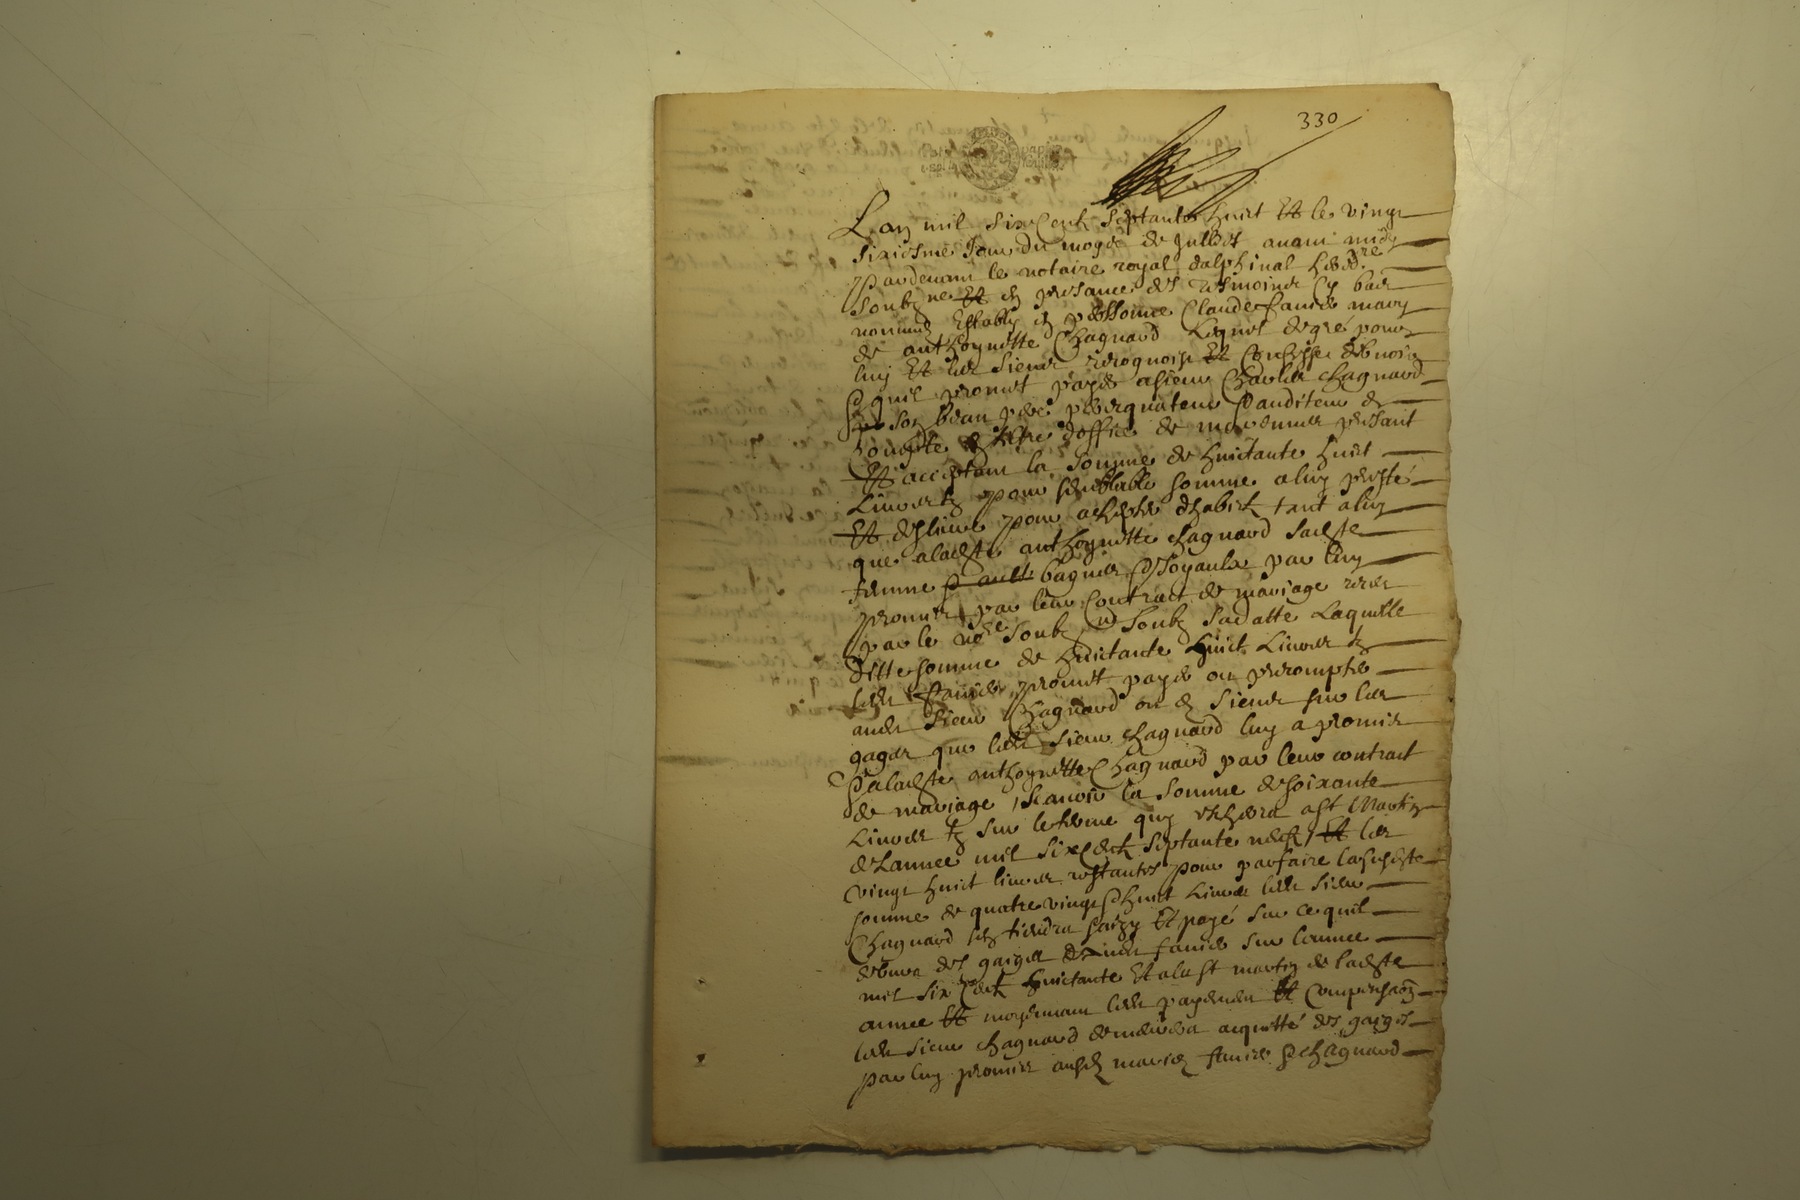 330
Lan mil six Centz septante huict Et le vingt
sixiesme Jour du moys de Julhet avant midy
Pardevant le notaire royal dalphinal hered.re
soubz.ne Et en presance des tesmoings Cy bas
nommes Estably en personne Claude Faure mary
de anthoynette Chagnard Lequel de gré pour
luy Et les siens recognoist Et Confesse debvoir
quil promet payer a sieur Charles Chagnard
son beau pere present
Et acceptant la somme de huictante huict
Livres tz pour semblable somme a luy presté
Et deslivré pour achepter dhabitz tant a luy
que aladite anthoynette Chagnard sadite
femme bagues Joyaulx par luy
promis par leur Contract de mariage receu
par le no.re soubz.ne soubz sa datte Laquelle
ditte somme de huictante huict Livres tz
ledit Faure promet payer ou precompter
audit sieur Chagnard ou es siens sur les
gages que ledit sieur Chagnard luy a promis
aladite anthoynette Chagnard par leur contract
de mariage, scavoir la somme de soixante
Livres tz sur le terme quy escherra a st Martin
de Lannee mil six Centz septante neuf, Et les
vingt huict livres restantes pour parfaire lasusdite
somme de quatre vingt huict Livres ledit sieur
Chagnard sen tiendra saizy Et payé sur ce quil
debvra des gaiges dudit Faure sur lannee
mil six Centz huictante Et a la st martin de ladite
annee Et moyennant ledit payement Et Compensaon
ledit sieur Chagnard demeurera acquitté des gaiges
par luy promis ausdz maries Faure Chagnard